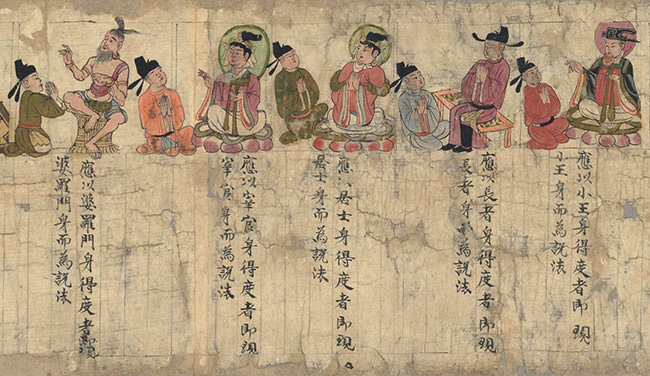 應以小王身得度者即現
小王身而為說法
應以長者身得度者即現
長者身而為說法
應以居士身得度者即現
居士身而為說法
應以宰官身得度者即現
宰官身而為說法
應以婆羅門身得度者即現
婆羅門身而為說法